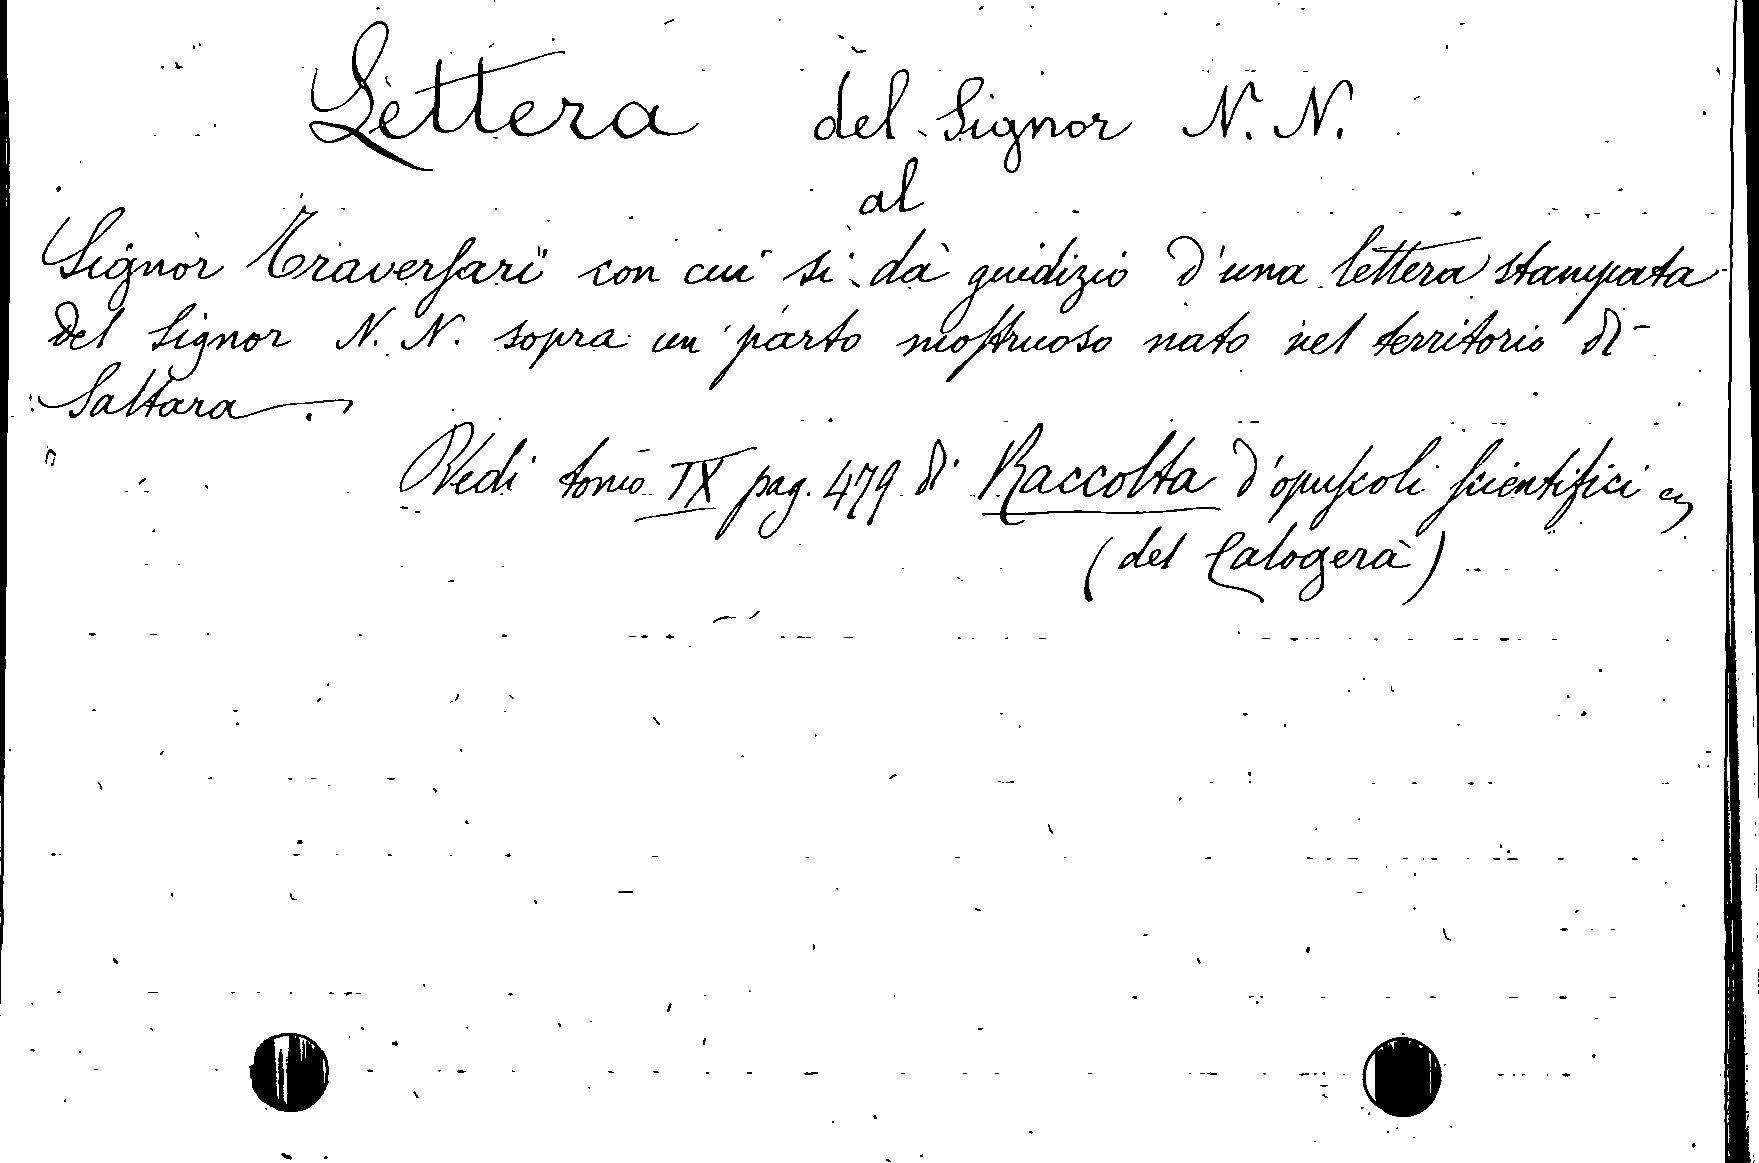 Lettera del Signor N. N.
al
Signor Traversari con cui si dà giudizio d'una lettera stampata
del Signor N. N. sopra un parto mostruoso nato nel territorio di
Saltara.
Vedi tomo IX pag. 479 di Raccolta d'opuscoli scientifici
(del Calogerà)